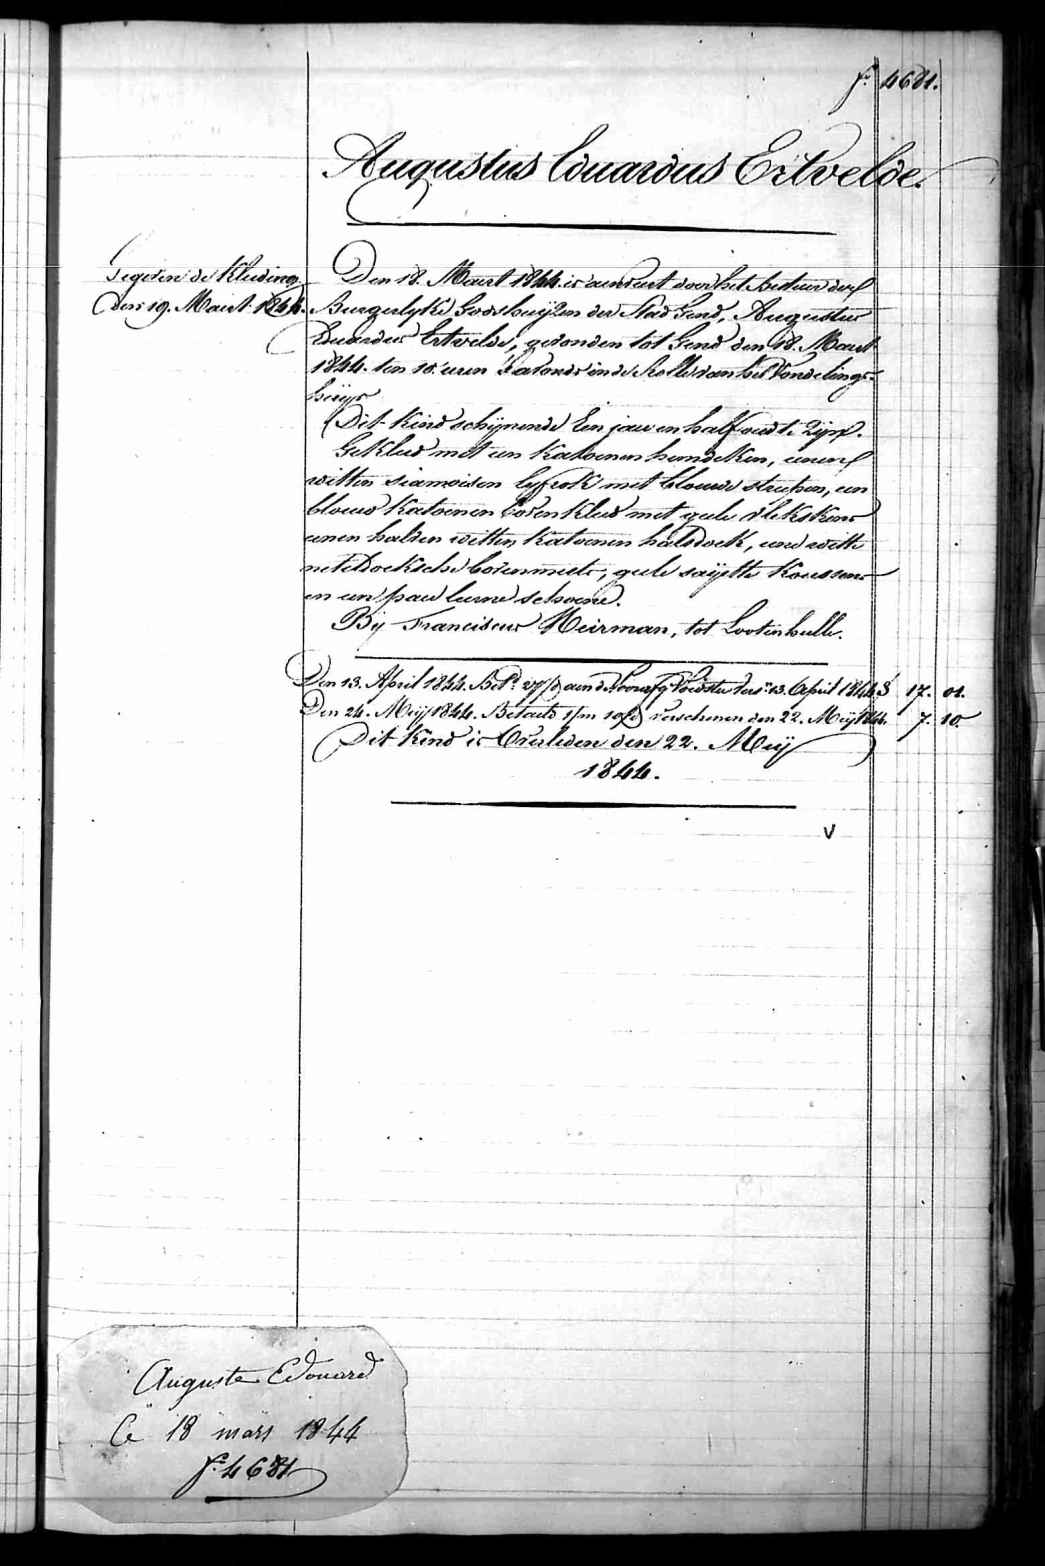 f.º 4681.
Augustus Eduardus Ertvelde.
Gegeven de Kleeding
den 19. Maert 1844.
Den 18. Maert 1844. is aenveert door het bestuer der
Burgerlyke Godshuijzen der Stad Gend, Augustus
Eduardus Ertvelde, gevonden tot Gend den 18. Maert
1844. ten 10. uren 's avonds in de Rolle van het Vondelings-
huijs
Dit Kind schijnende Een jaer en half oud te zijn.
Gekleed met een Katoenen hemdeken, eenen
witten siamoisen lyfrok met blauwe streepen, een
blauw Katoenen bovenkleed met geele vlekskens
eenen halven witten Katoenen halsdoek, eene witte
neteldoeksche bovenmuts, geele saijette Koussens
en een paer leerne schoene.
Bij Franciscus Meirman, tot Lootenhulle.
Den 13. April 1844. Bet.d 27/d aen de voorsg. Voedster vers.n 13. April 1844 17. 01.
Den 24. Meij 1844. Betaeld 1/m 10/d verschenen den 22. Meij 1844. 7. 10
Dit Kind is Overleden den 22. Meij
1844.
V
Auguste Edouard
Ce 18 mars 1844
f.º 4681